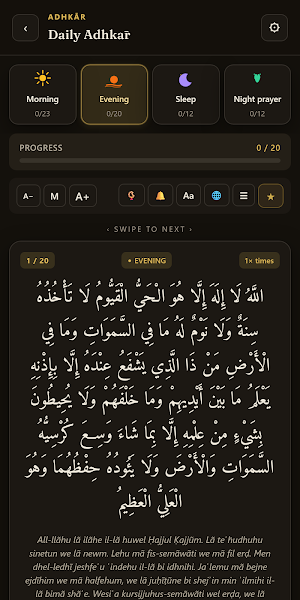 ADHKĀR
Daily Adhkār
Morning
0/23
Evening
0/20
Sleep
0/12
Night prayer
0/12
PROGRESS
0 / 20
A−
M
A+
Aa
‹ SWIPE TO NEXT ›
1 / 20
• EVENING
1× times
اللَّهُ لَا إِلَهَ إِلَّا هُوَ الْحَيُّ الْقَيُّومُ لَا تَأْخُذُهُ
سِنَةٌ وَلَا نَوْمٌ لَهُ مَا فِي السَّمَوَاتِ وَمَا فِي
الْأَرْضِ مَنْ ذَا الَّذِي يَشْفَعُ عِنْدَهُ إِلَّا بِإِذْنِهِ
يَعْلَمُ مَا بَيْنَ أَيْدِيهِمْ وَمَا خَلْفَهُمْ وَلَا يُحِيطُونَ
بِشَيْءٍ مِنْ عِلْمِهِ إِلَّا بِمَا شَاءَ وَسِعَ كُرْسِيُّهُ
السَّمَوَاتِ وَالْأَرْضَ وَلَا يَئُودُهُ حِفْظُهُمَا وَهُوَ
الْعَلِيُّ الْعَظِيمُ
All-llāhu lā ilāhe il-lā huwel Ḥajjul Ḳajjūm. Lā te᾿hudhuhu
sinetun we lā newm. Lehu mā fis-semāwāti we mā fil erḍ. Men
dhel-ledhī jeshfe῾u ῾indehu il-lā bi idhnihi. Ja῾lemu mā bejne
ejdīhim we mā halfehum, we lā juḥīṭūne bi shej᾿in min ῾ilmihi il-
lā bimā shā᾿e. Wesi῾a kursijjuhus-semāwāti wel erḍa, we lā